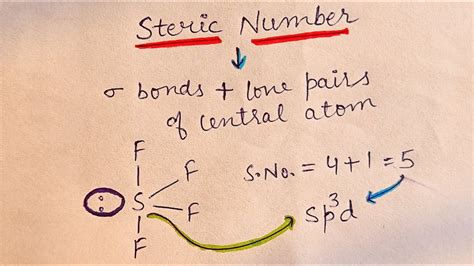 Steric Number
σ bonds + lone pairs
of central atom
F
F
:S
F
F
S.No. = 4+1 = 5
sp³d